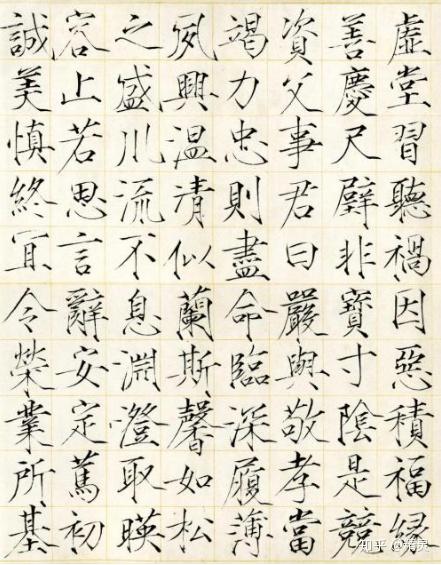 虚堂習聽禍因惡積福緣
善慶尺璧非寶寸陰是競
資父事君曰嚴與敬孝當
竭力忠則盡命臨深履薄
夙興温清似蘭斯馨如松
之盛川流不息淵澄取暎
容止若思言辭安定篤初
誠美慎終宜令榮業所基
知乎